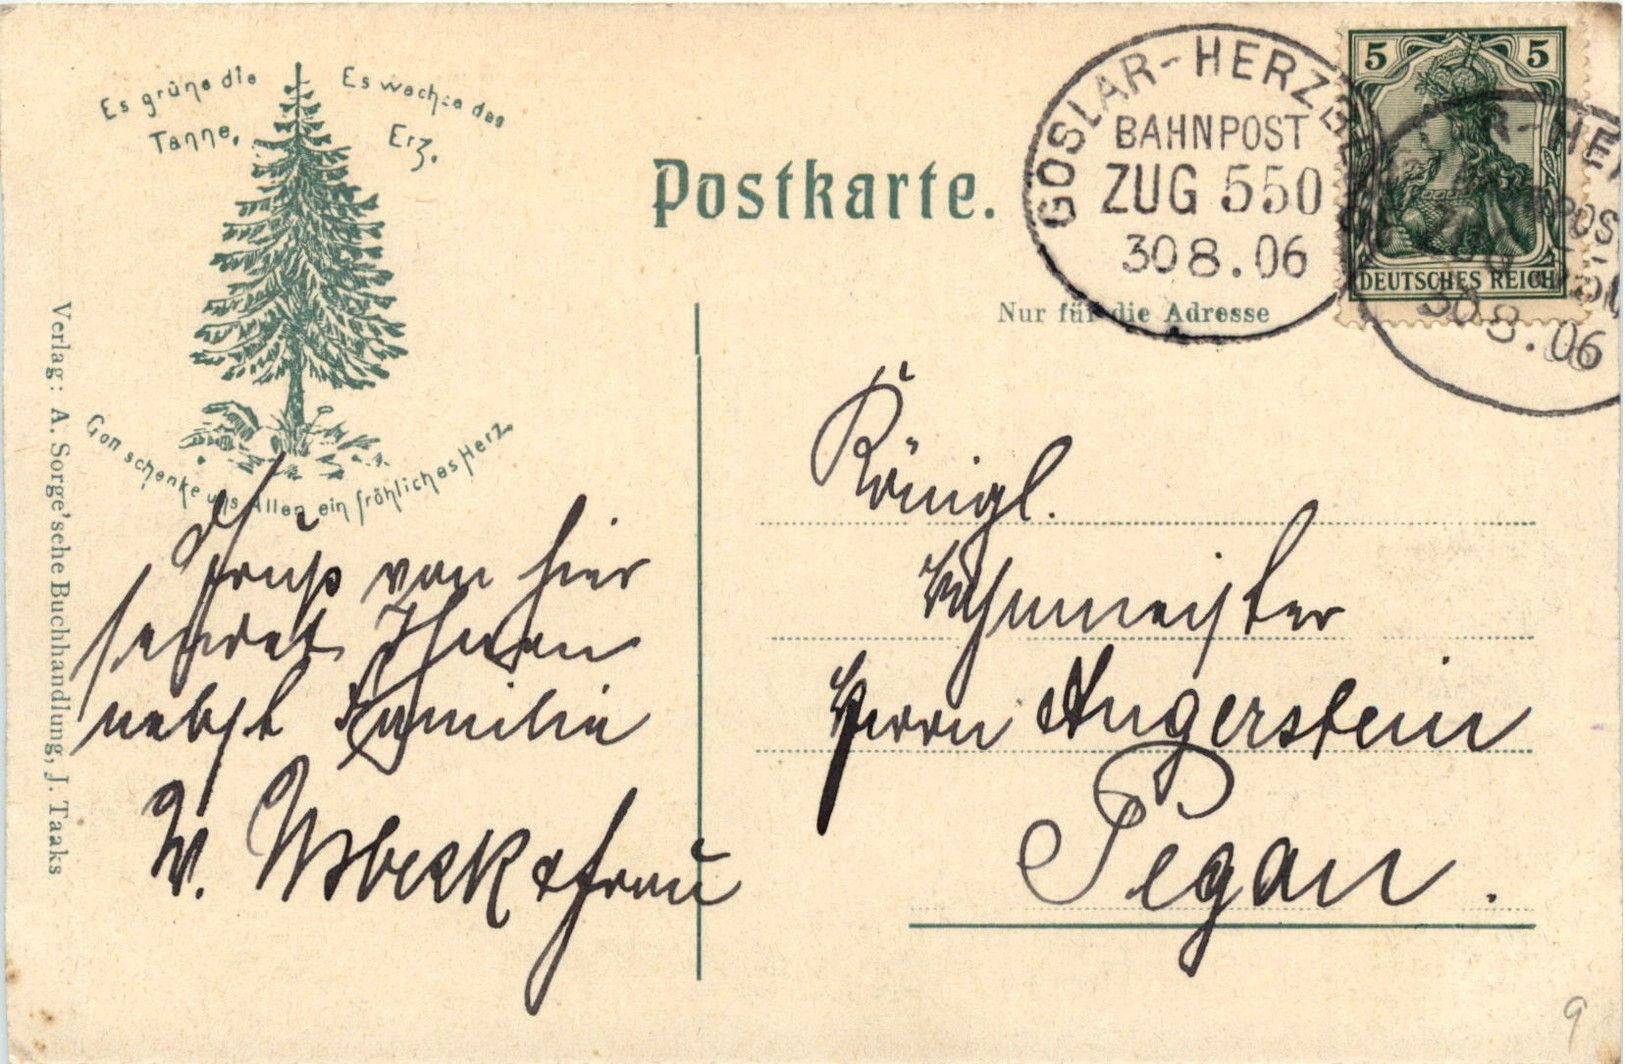 Es grüne die
Tanne,
Es wachse das
Erz,
Gott schenke uns Allen ein fröhliches Herz.
Postkarte.
Nur für die Adresse
GOSLAR-HERZBE
BAHNPOST
ZUG 550
30 8.06
5 5
DEUTSCHES REICH
R-HE
POS
30 8.06
Verlag: A. Sorge'sche Buchhandlung, J. Taaks
Gruß von hier
sendet Ihnen
nebst Familie
W. Usbeck & Frau
Königl.
Bahnmeister
Herrn Angerstein
Pegau.
9